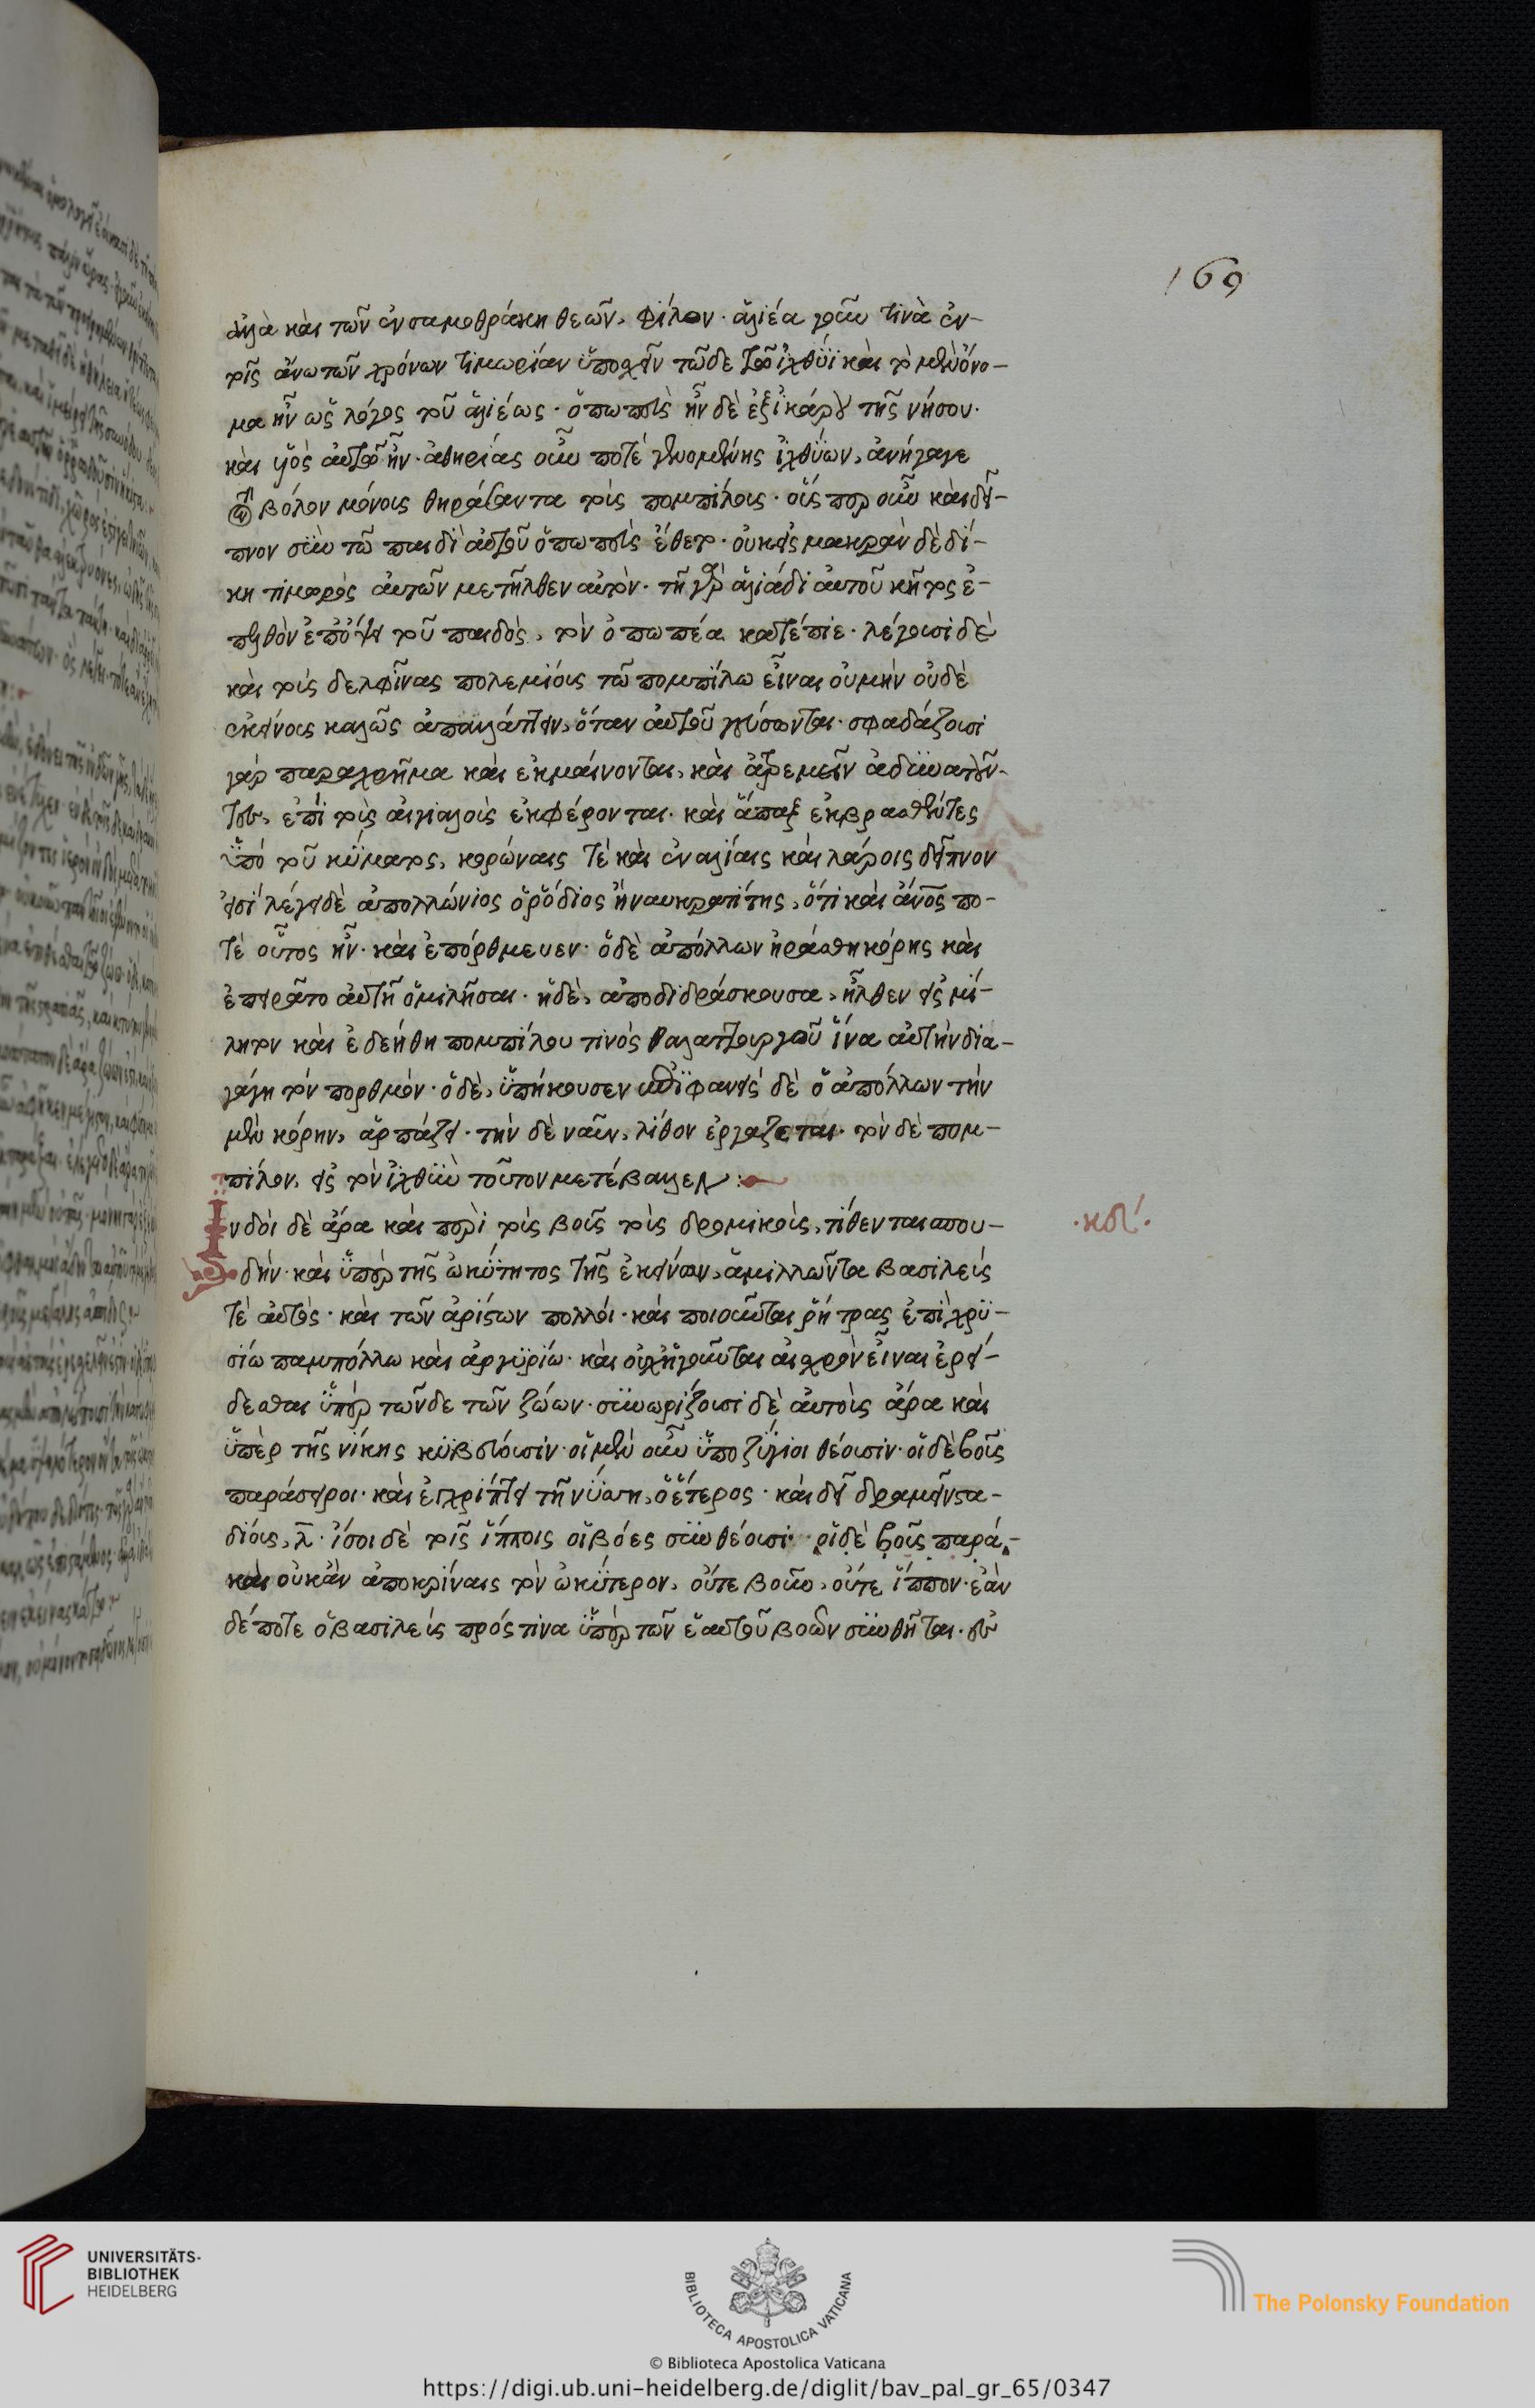 169
ἀλλὰ καὶ τῶν ἐν σαμοθράκη θεῶν, φίλον· ἁλιέα γοῦν τινὰ ἐν
τοῖς ἄνω τῶν χρόνων τιμωρίαν ὑποσχεῖν τῶδε τῶ ἰχθύϊ καὶ τὸ μὲν ὄνο-
μα ἦν ὡς λόγος τοῦ ἁλιέως· ὁπωπεὺς ἦν δὲ ἐξ ἰκάρου τῆς νήσου·
καὶ υἱὸς αὐτῶ ἦν· ἀθηρίας οὖν ποτὲ γενομένης ἰχθύων, ἀνήγαγε
βόλον μόνοις θηράσαντα τοῖς πομπίλοις· οἷς περ οὖν καὶ δεῖ-
πνον σὺν τῶ παιδὶ αὐτοῦ ὁπωπεὺς ἔθετο· οὐκ εἰς μακρὰν δὲ δί-
κη τιμωρὸς αὐτῶν μετῆλθεν αὐτόν· τῆ γὰρ ἁλιάδι αὐτοῦ κῆτος ἐ-
πελθὸν ἐπ ὄψει τοῦ παιδὸς, τὸν ὀπωπέα κατέπιε· λέγουσι δὲ
καὶ τοὺς δελφῖνας πολεμίους τῶ πομπίλω εἶναι οὐ μὴν οὐδὲ
ἐκείνους καλῶς ἀπαλλάττειν, ὅταν αὐτοῦ γεύσωνται· σφαδάζουσι
γὰρ παραχρῆμα καὶ ἐκμαίνονται, καὶ ἀτρεμεῖν ἀδυνατοῦν-
τες, ἐπὶ τοὺς αἰγιαλοὺς ἐκφέρονται· καὶ ἅπαξ ἐκβρασθέντες
ὑπὸ τοῦ κύματος, κορώναις τὲ καὶ ἐναλίαις καὶ λάροις δεῖπνον
εἰσί λέγει δὲ ἀπολλώνιος ὁ ῥόδιος ἢ ναυκρατίτης, ὅτι καὶ ἄνος πο-
τὲ οὗτος ἦν· καὶ ἐπόρθμευεν· ὁ δὲ ἀπόλλων ἠράσθη κόρης καὶ
ἐπειρᾶτο αὐτῆ ὁμιλῆσαι· ἡ δὲ, ἀποδιδράσκουσα, ἦλθεν εἰς μί-
λητον καὶ ἐδεήθη πομπίλου τινὸς θαλαττουργοῦ ἵνα αὐτὴν δια-
γάγη τὸν πορθμόν· ὁ δὲ, ὑπήκουσεν ἐπιφανεὶς δὲ ὁ ἀπόλλων τὴν
μὲν κόρην, ἁρπάζει· τὴν δὲ ναῦν, λίθον ἐργάζεται· τὸν δὲ πομ-
πίλον, εἰς τὸν ἰχθὺν τοῦτον μετέβαλλεν:
Ἰνδοὶ δὲ ἄρα καὶ περὶ τοὺς βοῦς τοὺς δρομικοὺς, τίθενται σπου-
δήν· καὶ ὑπὲρ τῆς ὠκύτητος τῆς ἐκείνων, ἁμιλλῶνται βασιλεῖς
τὲ αὐτοὶ· καὶ τῶν ἀρίστων πολλοί· καὶ ποιοῦνται ῥήτρας ἐπὶ χρυ-
σίω παμπόλλω καὶ ἀργυρίω· καὶ οὐχ ἡγοῦνται αἰσχρὸν εἶναι ἐρεί-
δεσθαι ὑπὲρ τῶνδε τῶν ζώων· συνωρίζουσι δὲ αὐτοὺς ἄρα καὶ
ὑπὲρ τῆς νίκης κυβεύουσιν· οἱ μὲν οὖν ὑποζύγιοι θέουσιν· οἱ δὲ βοῦς
παράσειροι· καὶ ἐγχρίπτει τῆ νύσση, ὁ ἕτερος· καὶ δεῖ δραμεῖν στα-
δίους, λ· ἴσοι δὲ τοῖς ἵπποις οἱ βόες συνθέουσι· οἱ δὲ βοῦς παρά-
καὶ οὐκ ἂν ἀποκρίναις τὸν ὠκύτερον, οὔτε βοῦν, οὔτε ἵππον· ἐὰν
δέ ποτε ὁ βασιλεὺς πρός τινα ὑπὲρ τῶν ἑαυτοῦ βοῶν συνθῆται· εἰς
·κδ´·
UNIVERSITÄTS-
BIBLIOTHEK
HEIDELBERG
BIBLIOTECA APOSTOLICA VATICANA
© Biblioteca Apostolica Vaticana
The Polonsky Foundation
https://digi.ub.uni-heidelberg.de/diglit/bav_pal_gr_65/0347